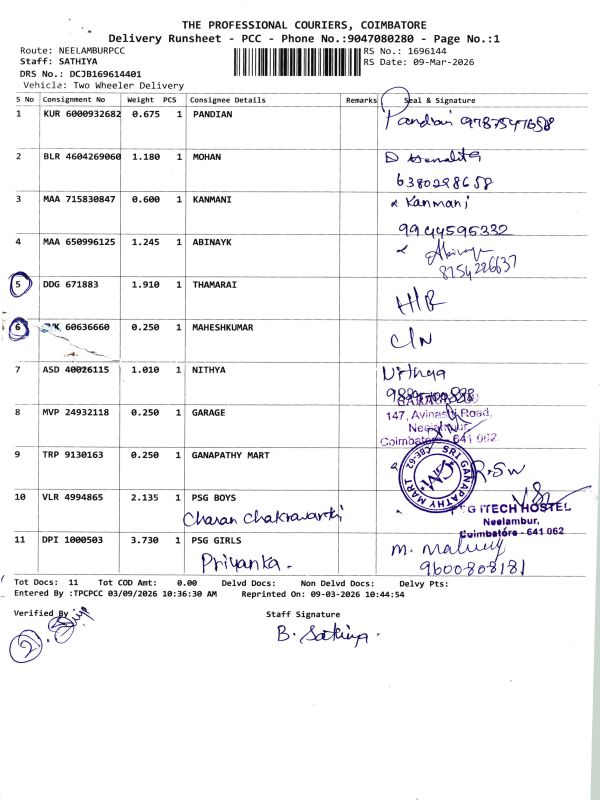 THE PROFESSIONAL COURIERS, COIMBATORE
Delivery Runsheet - PCC - Phone No.:9047080280 - Page No.:1
Route: NEELAMBURPCC
RS No.: 1696144
Staff: SATHIYA
RS Date: 09-Mar-2026
DRS No.: DCJB169614401
Vehicle: Two Wheeler Delivery
S No Consignment No Weight PCS Consignee Details Remarks Seal & Signature
1 KUR 6000932682 0.675 1 PANDIAN Pandian
2 BLR 4604269060 1.180 1 MOHAN
6380298658
3 MAA 715830847 0.600 1 KANMANI Kanmani
9944595332
4 MAA 650996125 1.245 1 ABINAYK
8754226637
5 DDG 671883 1.910 1 THAMARAI
6 60636660 0.250 1 MAHESHKUMAR C/N
7 ASD 40026115 1.010 1 NITHYA Nithya
8 MVP 24932118 0.250 1 GARAGE
147, Avinashi Road,
Neelambur,
Coimbatore - 641 062
9 TRP 9130163 0.250 1 GANAPATHY MART SRI GANAPATHY MART CBE-62
10 VLR 4994865 2.135 1 PSG BOYS
Charan Chakravarthi
G ITECH HOSTEL
Neelambur,
Coimbatore - 641 062
11 DPI 1000503 3.730 1 PSG GIRLS
Priyanka.
9600808181
Tot Docs: 11 Tot COD Amt: 0.00 Delvd Docs: Non Delvd Docs: Delvy Pts:
Entered By :TPCPCC 03/09/2026 10:36:30 AM Reprinted On: 09-03-2026 10:44:54
Verified By
Staff Signature
B. Sathiya.